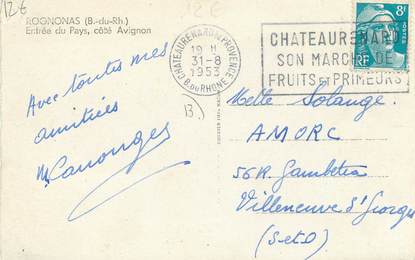 12€
ROGNONAS (B.-du-Rh.)
Entrée du Pays, côté Avignon
CHATEAURENARD DE PROVENCE
19 H
31-8
1953
B. DU RHONE
CHATEAURENARD
SON MARCHÉ DE
FRUITS ET PRIMEURS
8F
RF
13
Avec toutes mes
amitiés
M Canonge
Melle Solange
AMORC
56 R. Gambetta
Villeneuve St Georges
(S-et-O)